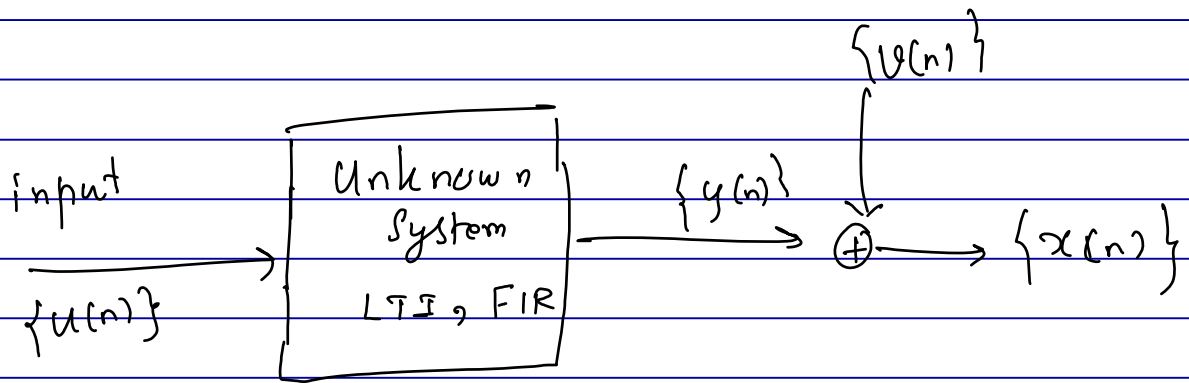 {v(n)}
input
Unknown
System
LTI, FIR
{u(n)}
{y(n)}
{x(n)}